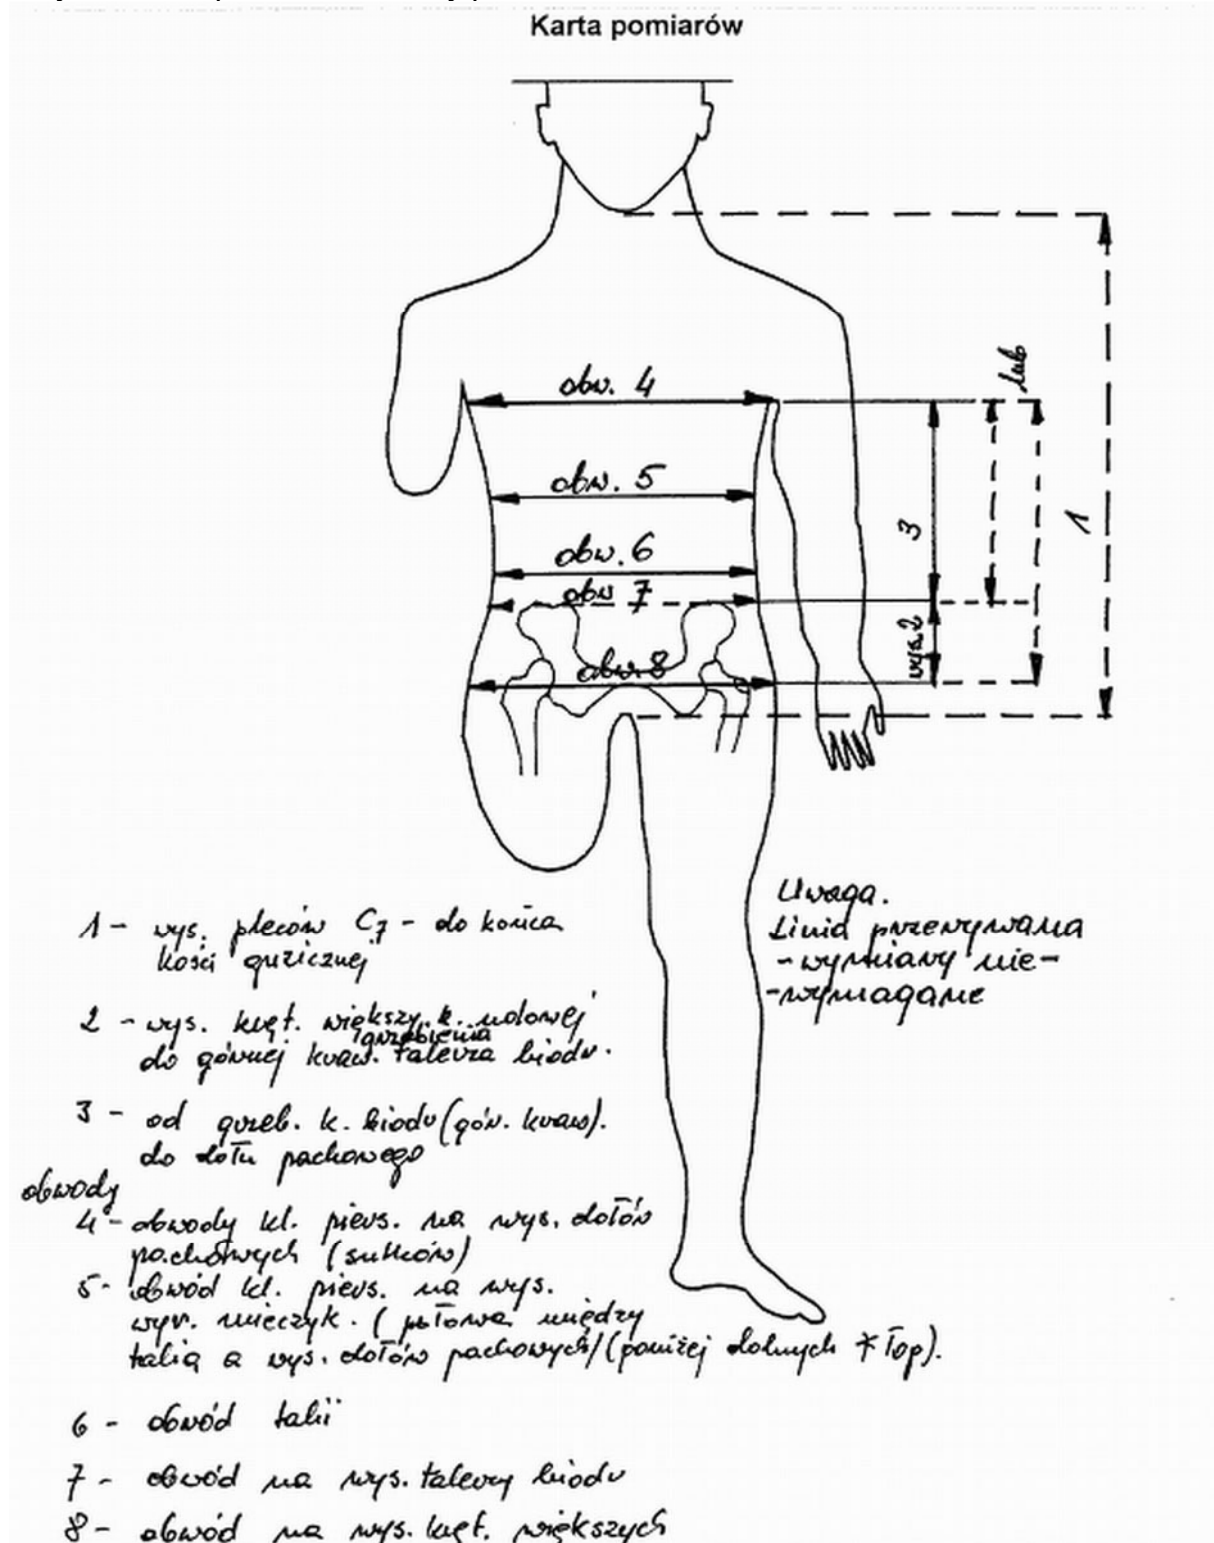 Karta pomiarów
obw. 4
lub
obw. 5
3
1
obw. 6
obw 7
wys. 2
obw. 8
Uwaga.
Linia przerywana
- wymiary nie-
-wymagane
1 - wys. pleców C7 - do końca
kości guzicznej
2 - wys. kręt. większy. k. udowej
grzebienia
do górnej kraw. talerza biodr.
3 - od grzeb. k. biodr (gór. kraw).
do dołu pachowego
obwody
4 - obwody kl. piers. na wys. dołów
pachowych (sutków)
5 - obwód kl. piers. na wys.
wyr. mieczyk. ( połowa między
talią a wys. dołów pachowych/(poniżej dolnych ż łop).
6 - obwód talii
7 - obwód na wys. talerzy biodr
8 - obwód na wys. kręt. większych